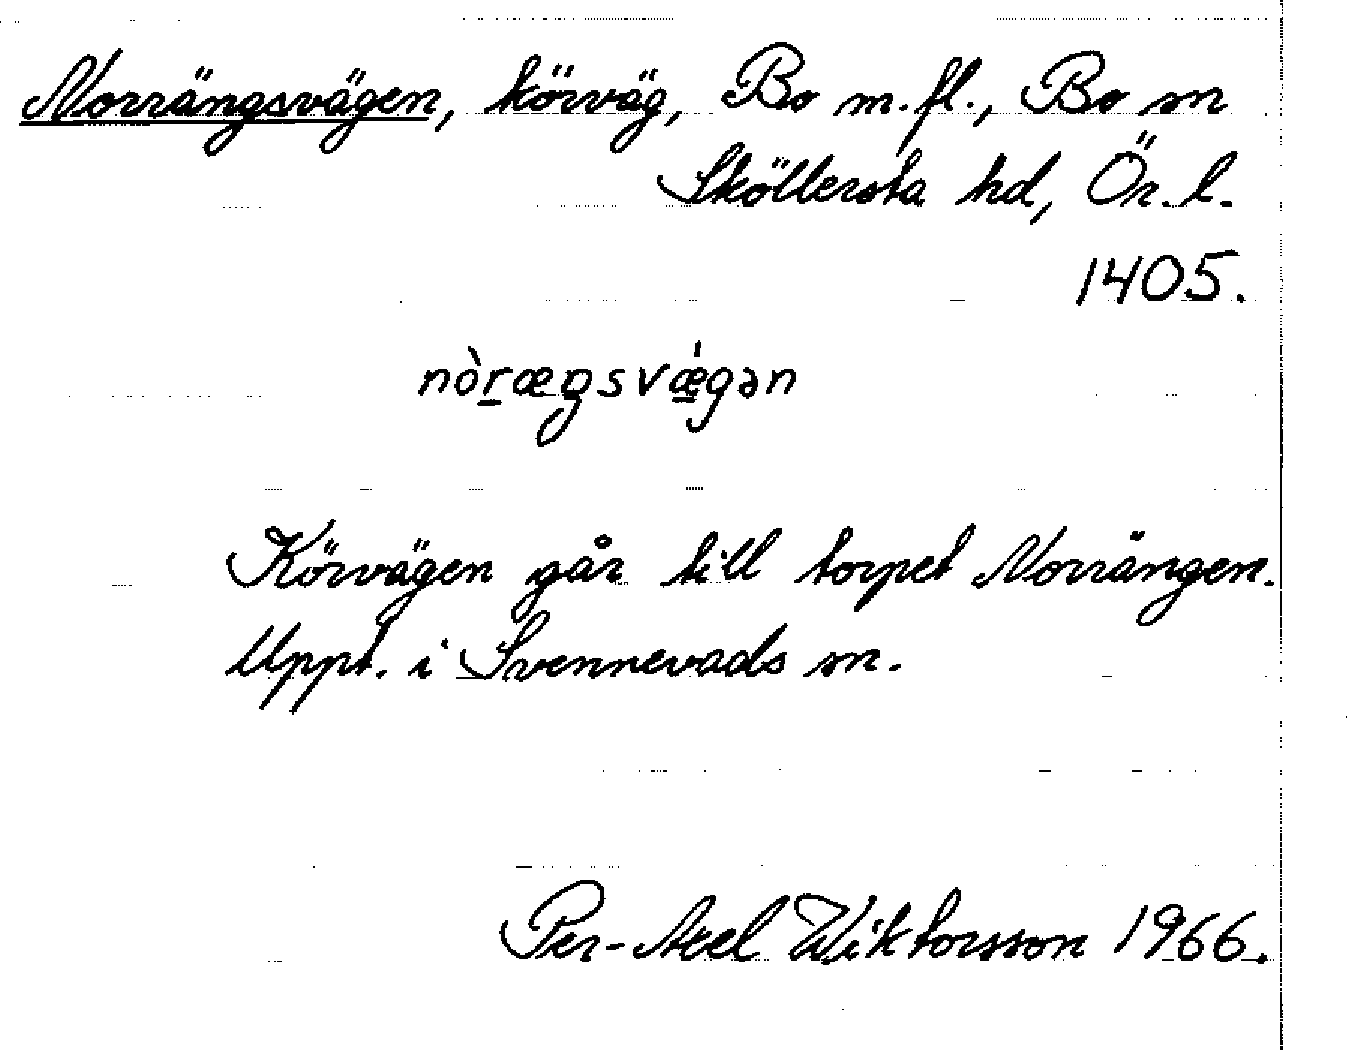 Norrängsvägen, körväg, Bo m.fl., Bo sn
Sköllersta hd, Ör. l.
1405.
nòr̲æŋsvǽ̲gən
Körvägen går till torpet Norrängen.
Uppt. i Svennevads sn.
Per-Axel Wiktorsson 1966.